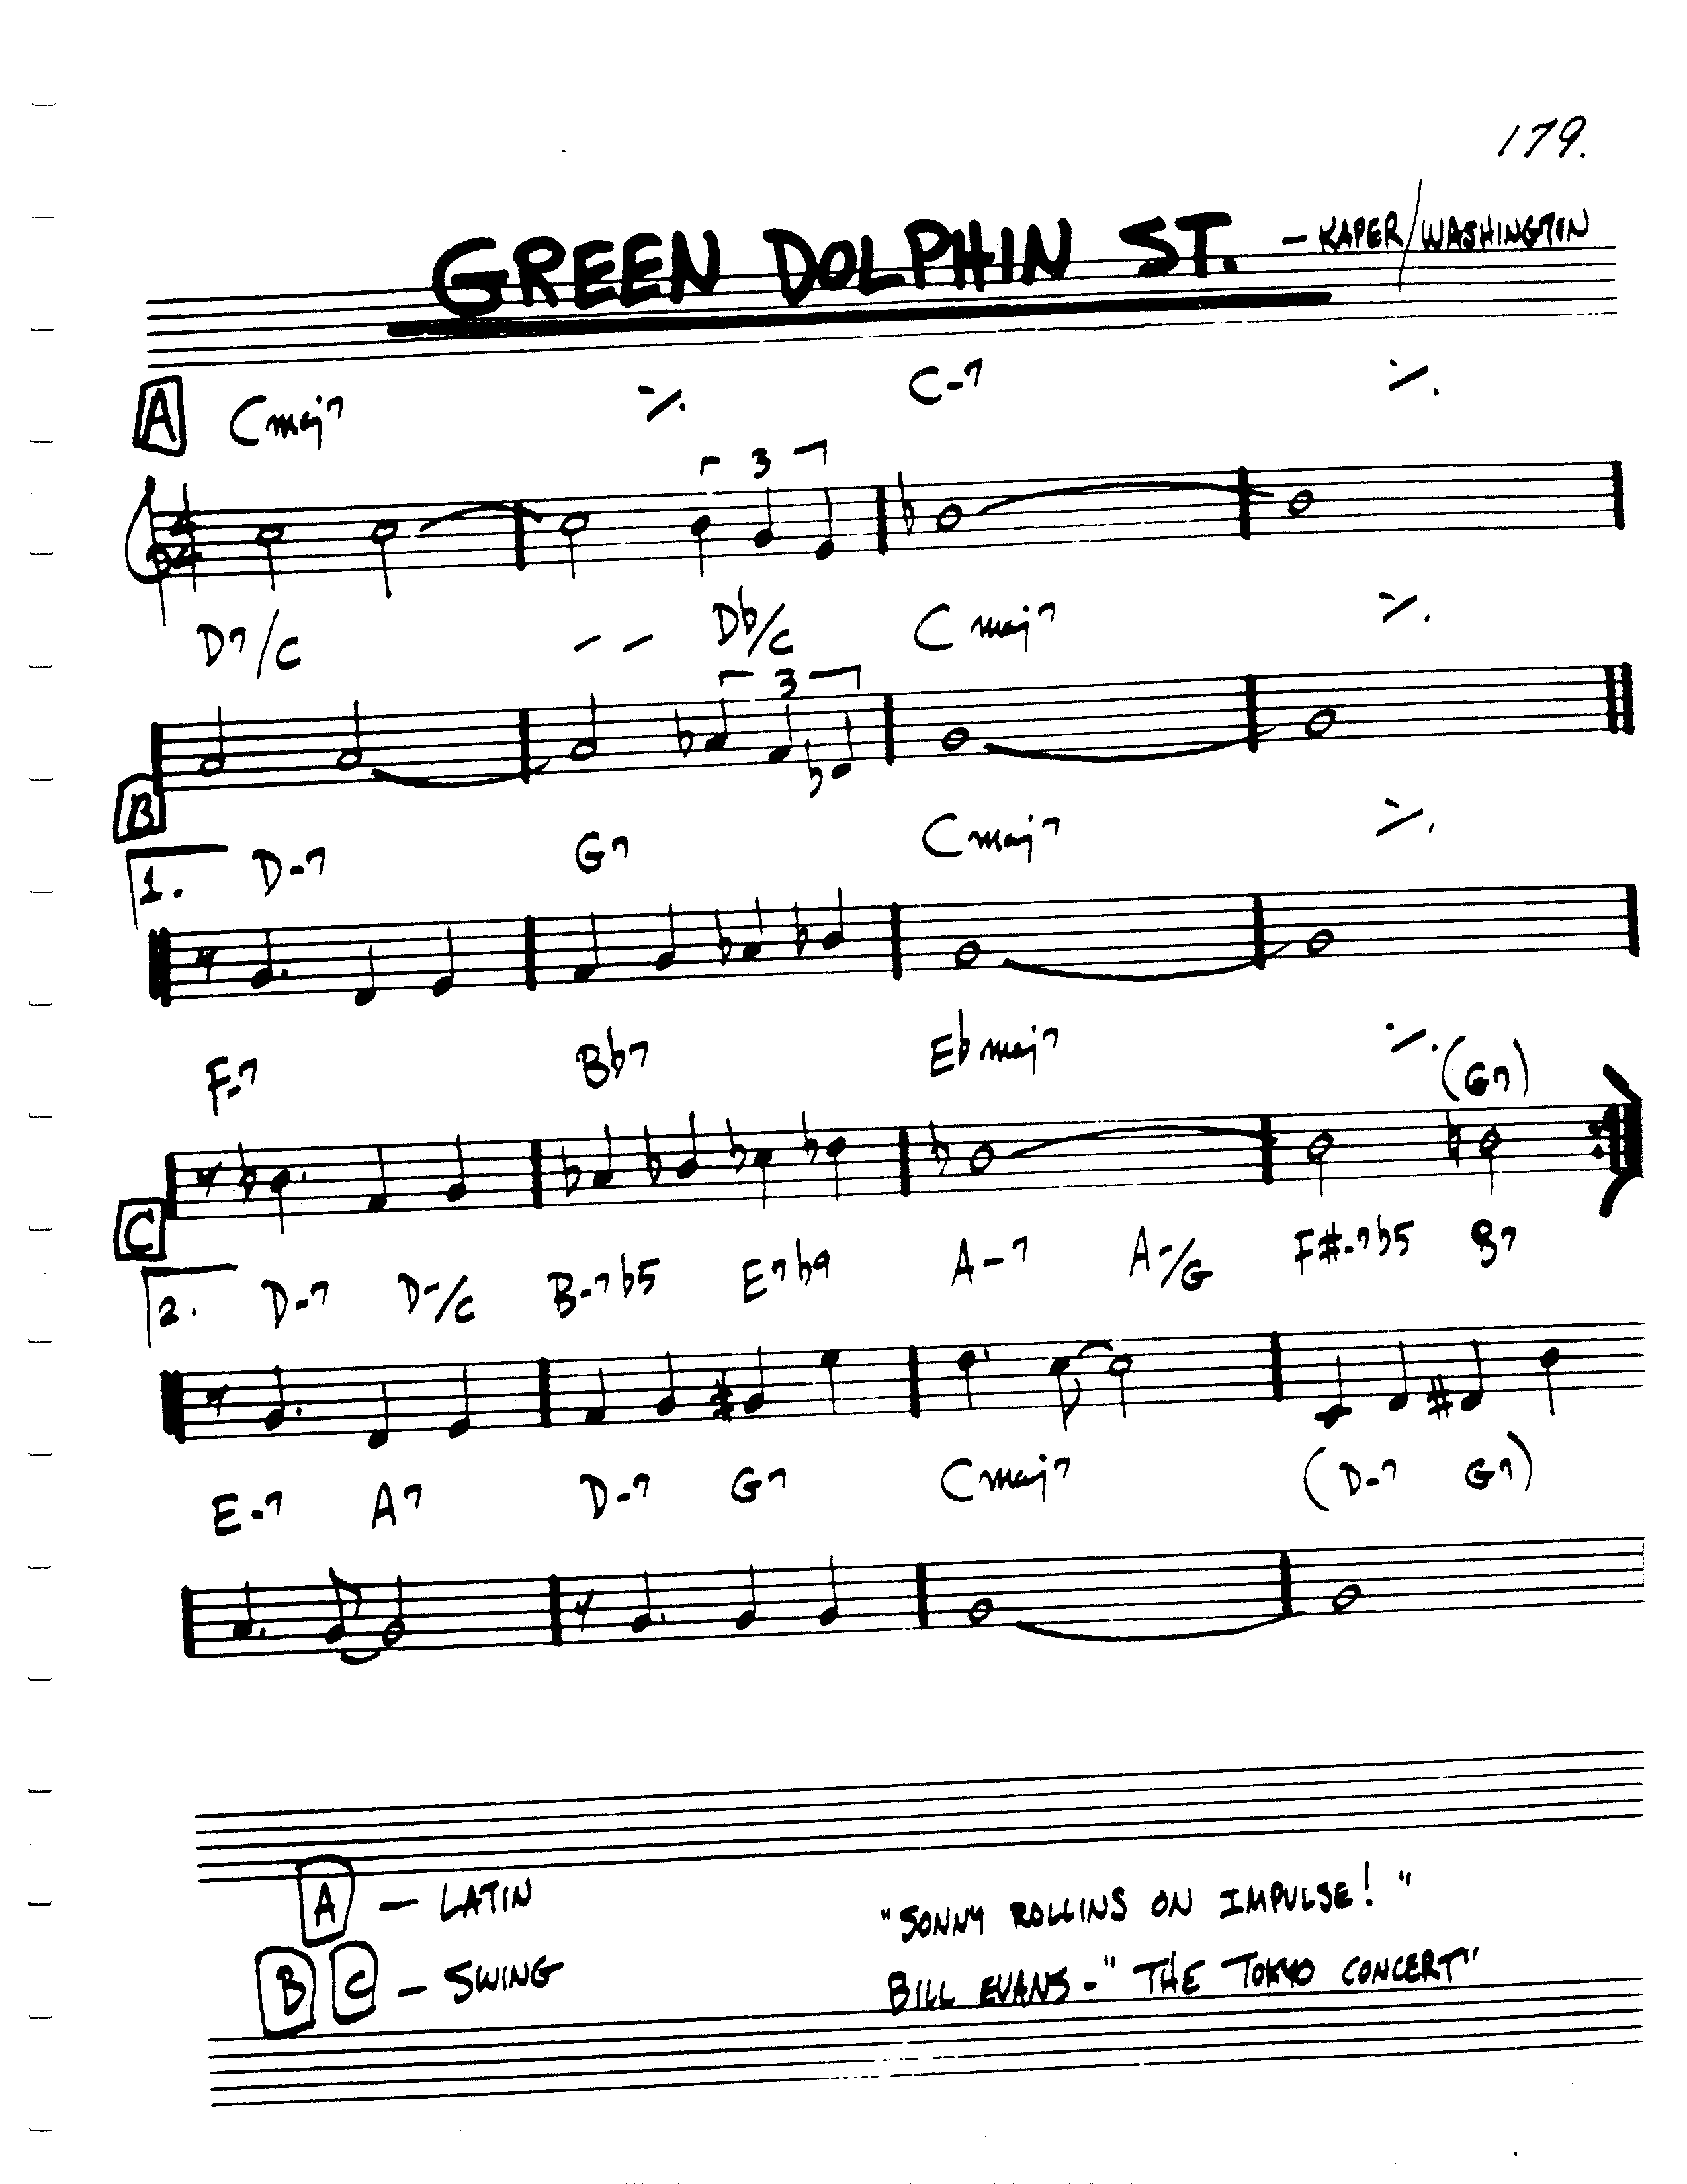 179.
GREEN DOLPHIN ST. - KAPER/WASHINGTON
A Cmaj7 ٪ C-7 ٪
3
D7/C - - Db/C Cmaj7 ٪
3
B
1. D-7 G7 Cmaj7 ٪
F-7 Bb7 Ebmaj7 ٪ (G7)
C
2. D-7 D-/C B-7b5 E7b9 A-7 A-/G F#-7b5 B7
E-7 A7 D-7 G7 Cmaj7 (D-7 G7)
A - LATIN
B C - SWING
"SONNY ROLLINS ON IMPULSE!"
BILL EVANS - "THE TOKYO CONCERT"